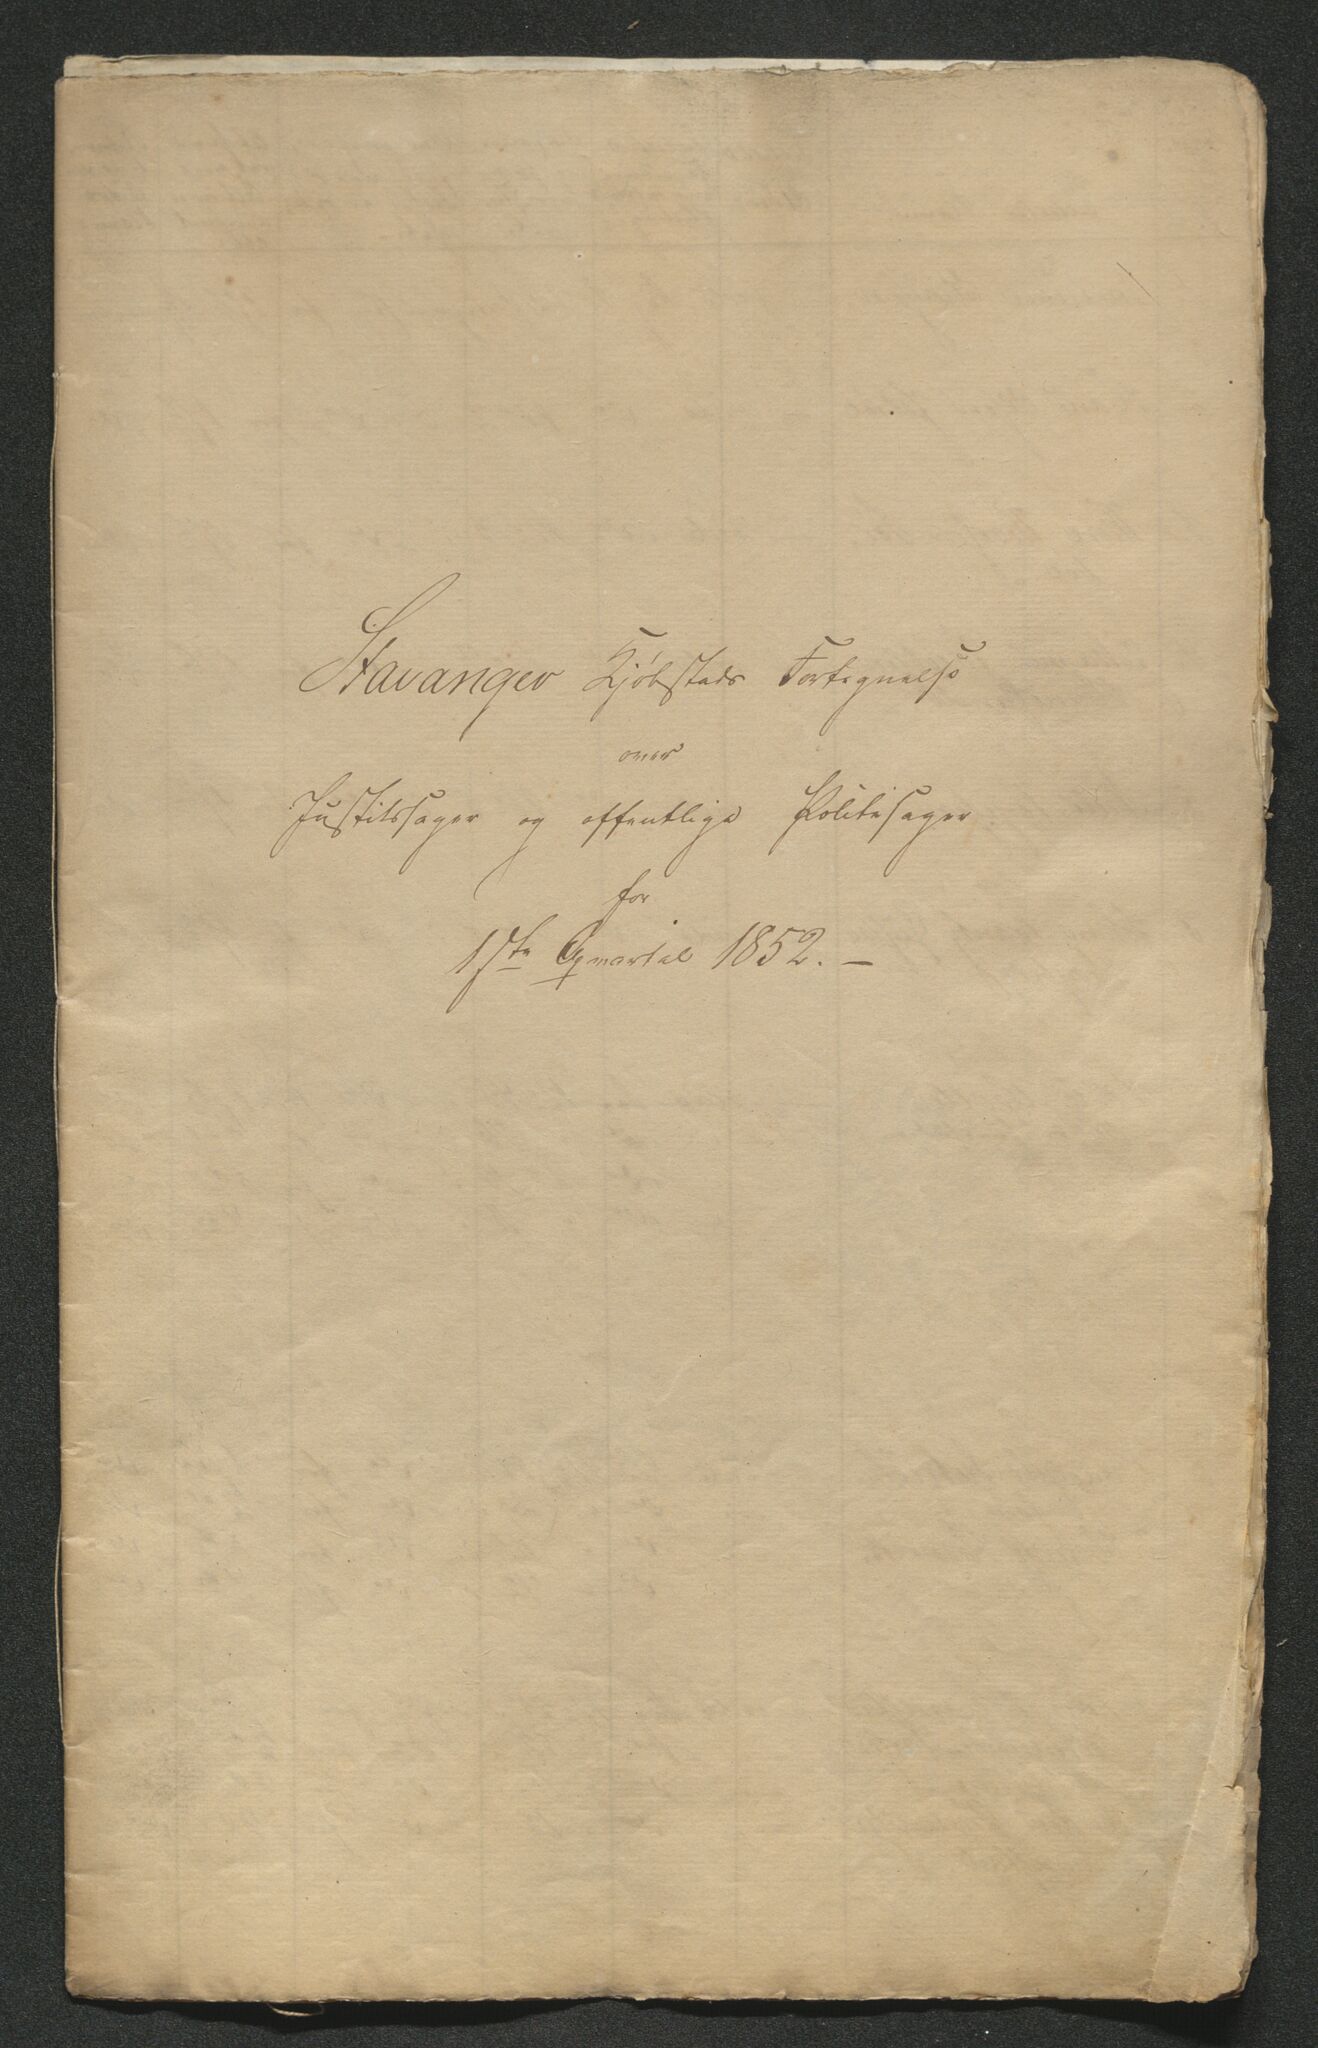 Stavanger Kjöbstads Fortegnelse
over
Justitssager og offentlige Politisager
for
1ste Qvartal 1852. –